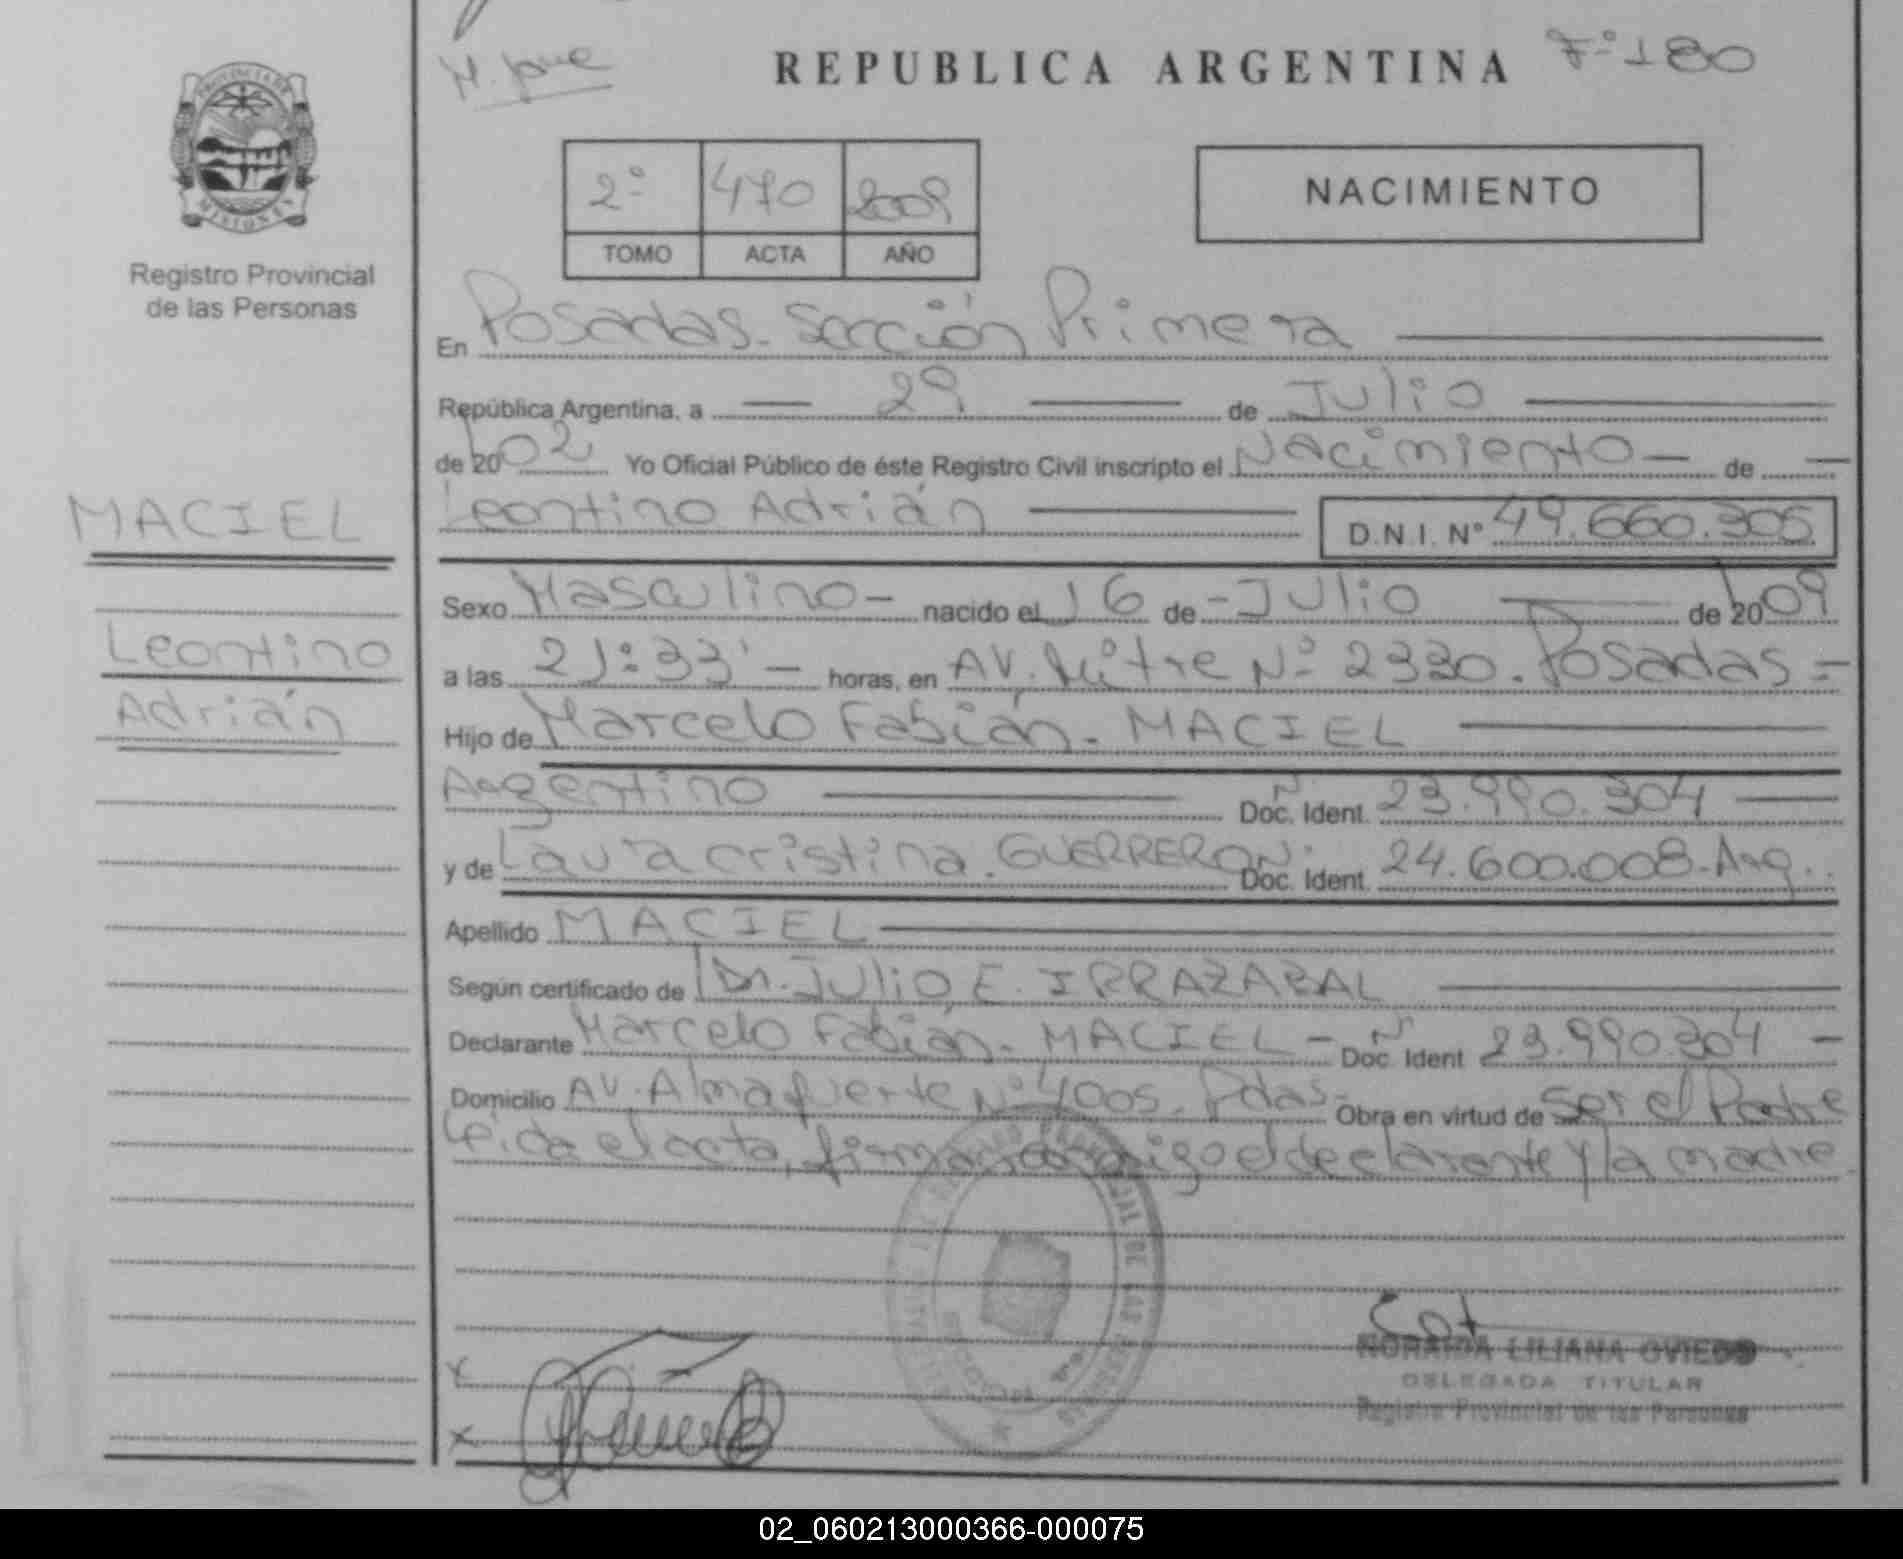 M. pue
REPUBLICA ARGENTINA Fº 180
PROVINCIA DE
MISIONES
Registro Provincial
de las Personas
2º 470 2009
TOMO ACTA AÑO
NACIMIENTO
En Posadas. Sección Primera
República Argentina, a 29 de Julio
de 20 02 Yo Oficial Público de éste Registro Civil inscripto el Nacimiento de
Leontino Adrián D.N.I. Nº 49.660.305
MACIEL
Leontino
Adrián
Sexo Masculino nacido el 16 de Julio de 20 09
a las 21:33' horas, en AV. Mitre Nº 2330. Posadas
Hijo de Marcelo Fabián. MACIEL
Argentino Doc. Ident. N 23.990.304
y de Laura Cristina. GUERRERO N Doc. Ident. 24.600.008. Arg.
Apellido MACIEL
Según certificado de Dr. Julio E. IRRAZABAL
Declarante Marcelo Fabián. MACIEL N Doc. Ident 23.990.304
Domicilio AV. Almafuerte Nº 4005. Pdas. Obra en virtud de Ser el Padre
Leída el acta, firman conmigo el declarante y la madre.
NORAIDA LILIANA OVIEDO
DELEGADA TITULAR
Registro Provincial de las Personas
02_060213000366-000075